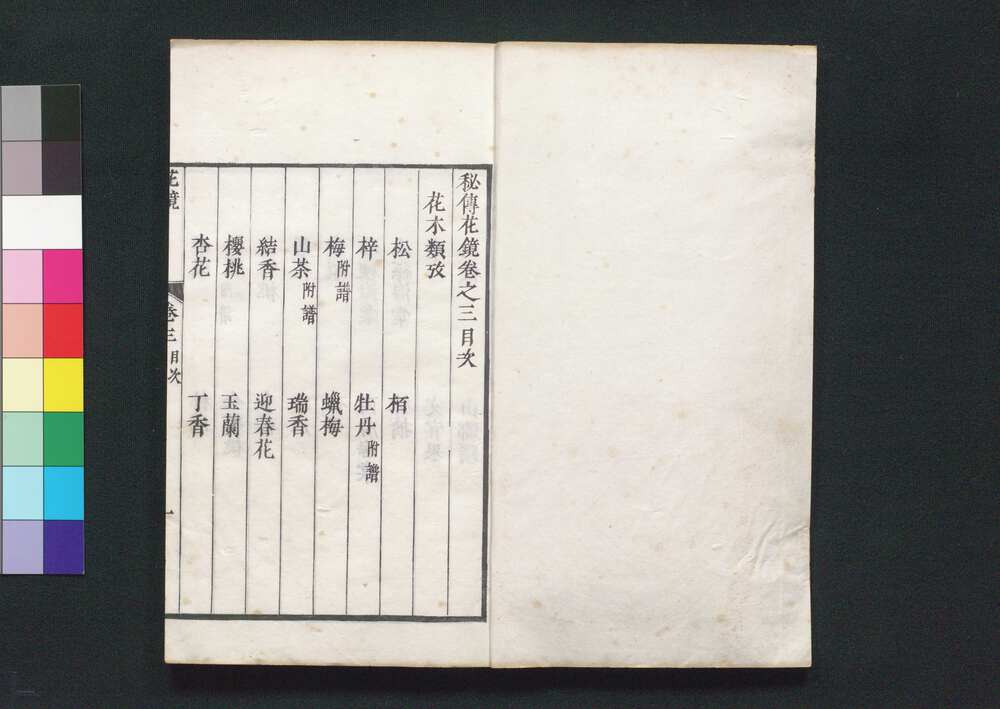 秘傳花鏡卷之三目次
花木類攷
松　栢
梓　牡丹附譜
梅附譜　蠟梅
山茶附譜　瑞香
結香　迎春花
櫻桃　玉蘭
杏花　丁香
花鏡　卷三目次　一